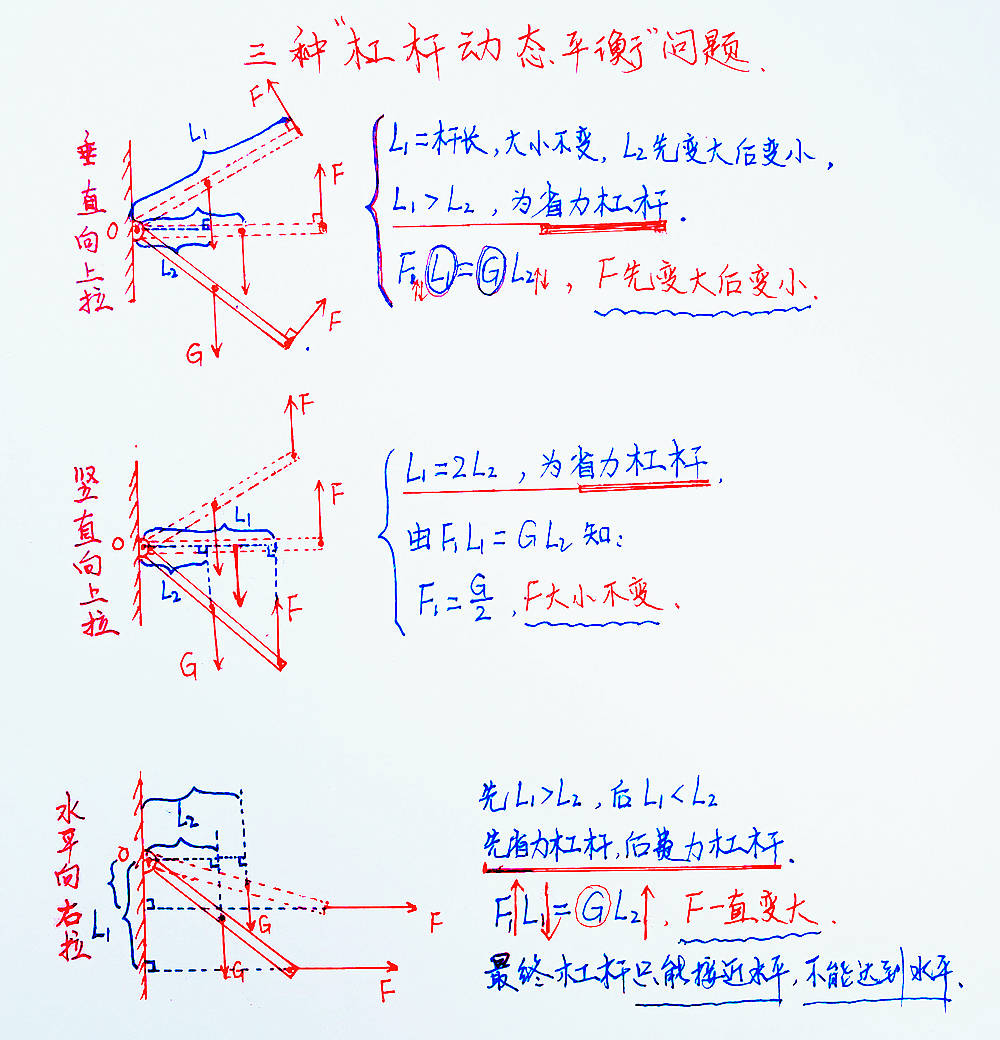 三种“杠杆动态平衡”问题.
垂直向上拉
F
L₁
F
O
L₂
G
F
L₁=杆长,大小不变,L₂先变大后变小,
L₁>L₂,为省力杠杆.
F₁↑↓L₁=GL₂↑↓,F先变大后变小.
竖直向上拉
F
F
L₁
O
L₂
F
G
L₁=2L₂,为省力杠杆.
由F₁L₁=GL₂知:
F₁=G/2,F大小不变.
水平向右拉
L₂
O
L₁
G
F
G
F
先L₁>L₂,后L₁<L₂
先省力杠杆,后费力杠杆.
F₁↑L₁↓=GL₂↑,F一直变大.
最终杠杆只能接近水平,不能达到水平.